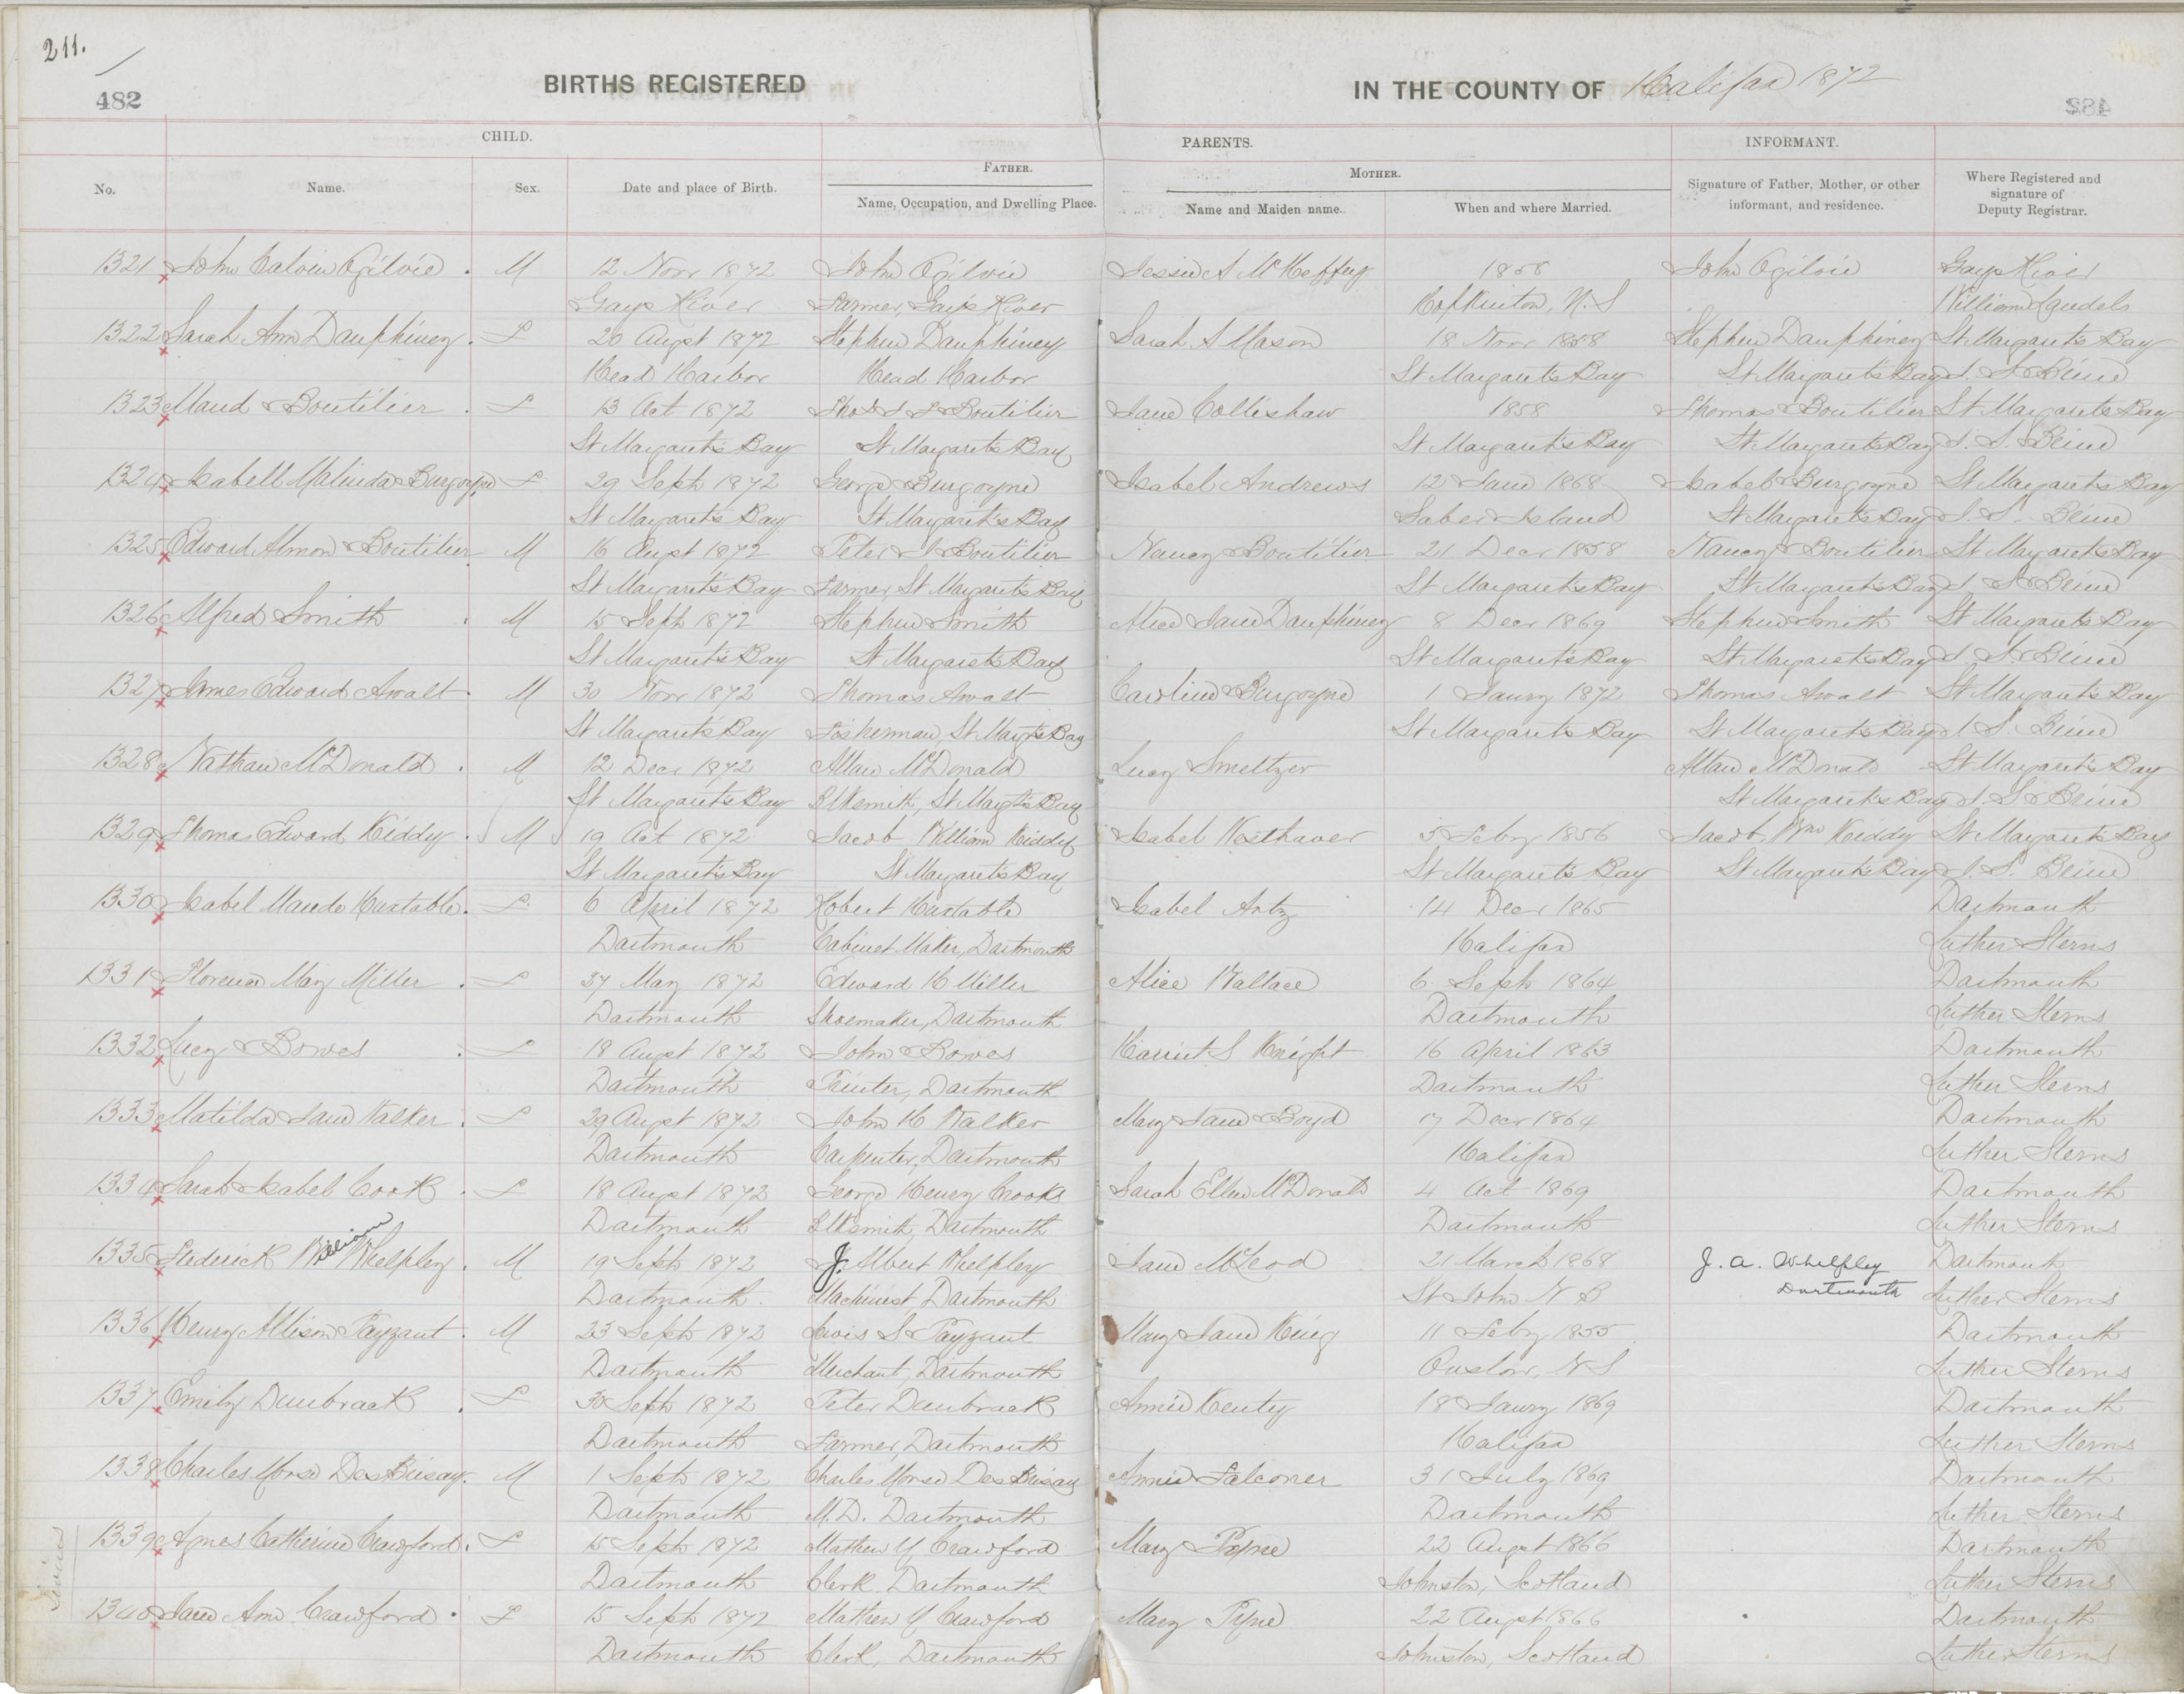 211.
482
BIRTHS REGISTERED
IN THE COUNTY OF Halifax 1872
CHILD.
PARENTS.
INFORMANT.
No.
Name.
Sex.
Date and place of Birth.
FATHER.
Name, Occupation, and Dwelling Place.
MOTHER.
Name and Maiden name.
When and where Married.
Signature of Father, Mother, or other
informant, and residence.
Where Registered and
signature of
Deputy Registrar.
1321 John Calvin Ogilvie . M 12 Novr 1872 John Ogilvie Jessie A McHeffey 1858 John Ogilvie Gays River
Gays River Farmer, Gays River N.S William
1322 Sarah Ann Dauphiney . F 20 Augst 1872 Stephen Dauphiney Sarah A Mason 18 Novr 1858 Stephen Dauphiney St Margarets Bay
Head Harbor Head Harbor St Margarets Bay St Margarets Bay
1323 Maud Boutilier . F 13 Oct 1872 Boutilier Jane Collishaw 1858 Thomas Boutilier St Margarets Bay
St Margarets Bay St Margarets Bay St Margarets Bay St Margarets Bay
1324 Isabell Malinda Burgoyne F 29 Sept 1872 George Burgoyne Isabel Andrews 12 June 1868 Isabel Burgoyne St Margarets Bay
St Margarets Bay St Margarets Bay Island St Margarets Bay
1325 Edward Almon Boutilier M 16 Augst 1872 Peter J Boutilier Nancy Boutilier 21 Decr 1858 Nancy Boutilier St Margarets Bay
St Margarets Bay Farmer St Margarets Bay St Margarets Bay St Margarets Bay
1326 Alfred Smith . M 15 Sept 1872 Stephen Smith Alice Jane Dauphiney 8 Decr 1869 Stephen Smith St Margarets Bay
St Margarets Bay St Margarets Bay St Margarets Bay St Margarets Bay
1327 James Edward Awalt . M 30 Novr 1872 Thomas Awalt Caroline Burgoyne 1 Jany 1872 Thomas Awalt St Margarets Bay
St Margarets Bay Fisherman, St Margts Bay St Margarets Bay St Margarets Bay
1328 Nathan McDonald . M 12 Decr 1872 Allan McDonald Lucy Smeltzer Allan McDonald St Margarets Bay
St Margarets Bay Blksmith, St Margts Bay St Margarets Bay
1329 Thomas Edward Kiddy . M 19 Oct 1872 Jacob William Kiddy Isabel Westhaver 5 Feby 1856 Jacob Wm Kiddy St Margarets Bay
St Margarets Bay St Margarets Bay St Margarets Bay St Margarets Bay
1330 Isabel Maude Huxtable . F 6 April 1872 Robert Huxtable Isabel Artz 14 Decr 1865 Dartmouth
Dartmouth Cabinet Maker, Dartmouth Halifax Luther Sterns
1331 Florence May Miller . F 27 May 1872 Edward H Miller Alice Wallace 6 Sept 1864 Dartmouth
Dartmouth Shoemaker, Dartmouth Dartmouth Luther Sterns
1332 Lucy Bowes . F 18 Augst 1872 John Bowes Harriet S Knight 16 April 1863 Dartmouth
Dartmouth Printer, Dartmouth Dartmouth Luther Sterns
1333 Matilda Jane Walker . F 29 Augst 1872 John H Walker Mary Jane Boyd 17 Decr 1864 Dartmouth
Dartmouth Carpenter, Dartmouth Halifax Luther Sterns
1334 Sarah Isabel Cook . F 18 Augst 1872 George Henry Crooks Sarah Ellen McDonald 4 Oct 1869 Dartmouth
Dartmouth Blksmith, Dartmouth Dartmouth Luther Sterns
1335 Frederick William Whelpley . M 19 Sept 1872 J. Albert Whelpley Jane McLeod 21 March 1868 J. A. Whelpley Dartmouth
Dartmouth Machinist, Dartmouth St John N B Dartmouth Luther Sterns
1336 Henry Allison Payzant . M 23 Sept 1872 Lewis S Payzant Mary Jane King 11 Feby 1855 Dartmouth
Dartmouth Merchant, Dartmouth Onslow, N S Luther Sterns
1337 Emily Dunbrack . F 30 Sept 1872 Peter Dunbrack Annie 18 Jany 1869 Dartmouth
Dartmouth Farmer, Dartmouth Halifax Luther Sterns
1338 Charles Morse DesBrisay . M 1 Sept 1872 Charles Morse DesBrisay Annie Falconer 31 July 1869 Dartmouth
Dartmouth M.D. Dartmouth Dartmouth Luther Sterns
1339 Agnes Catherine Crawford . F 15 Sept 1872 Mathew Y Crawford Mary Pyne 22 Augst 1866 Dartmouth
Dartmouth Clerk Dartmouth Johnston, Scotland Luther Sterns
1340 Jane Ann Crawford . F 15 Sept 1872 Mathew Y Crawford Mary Pyne 22 Augst 1866 Dartmouth
Dartmouth Clerk, Dartmouth Johnston, Scotland Luther Sterns